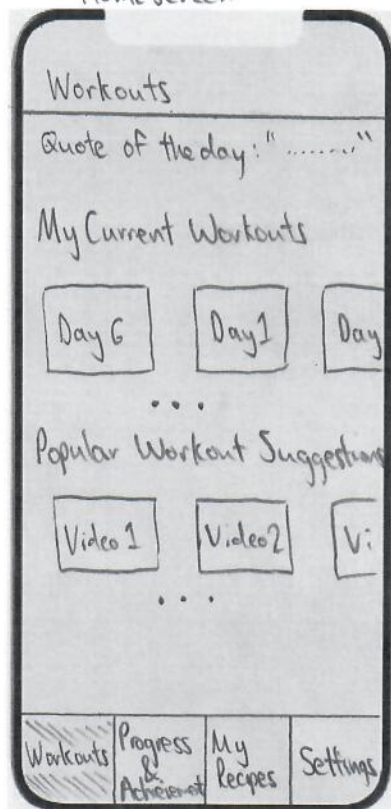 Home Screen
Workouts
Quote of the day: "........"
My Current Workouts
Day 6 Day 1 Day
...
Popular Workout Suggestions
Video 1 Video 2 Vi
...
Workouts Progress & Achievement My Recipes Settings